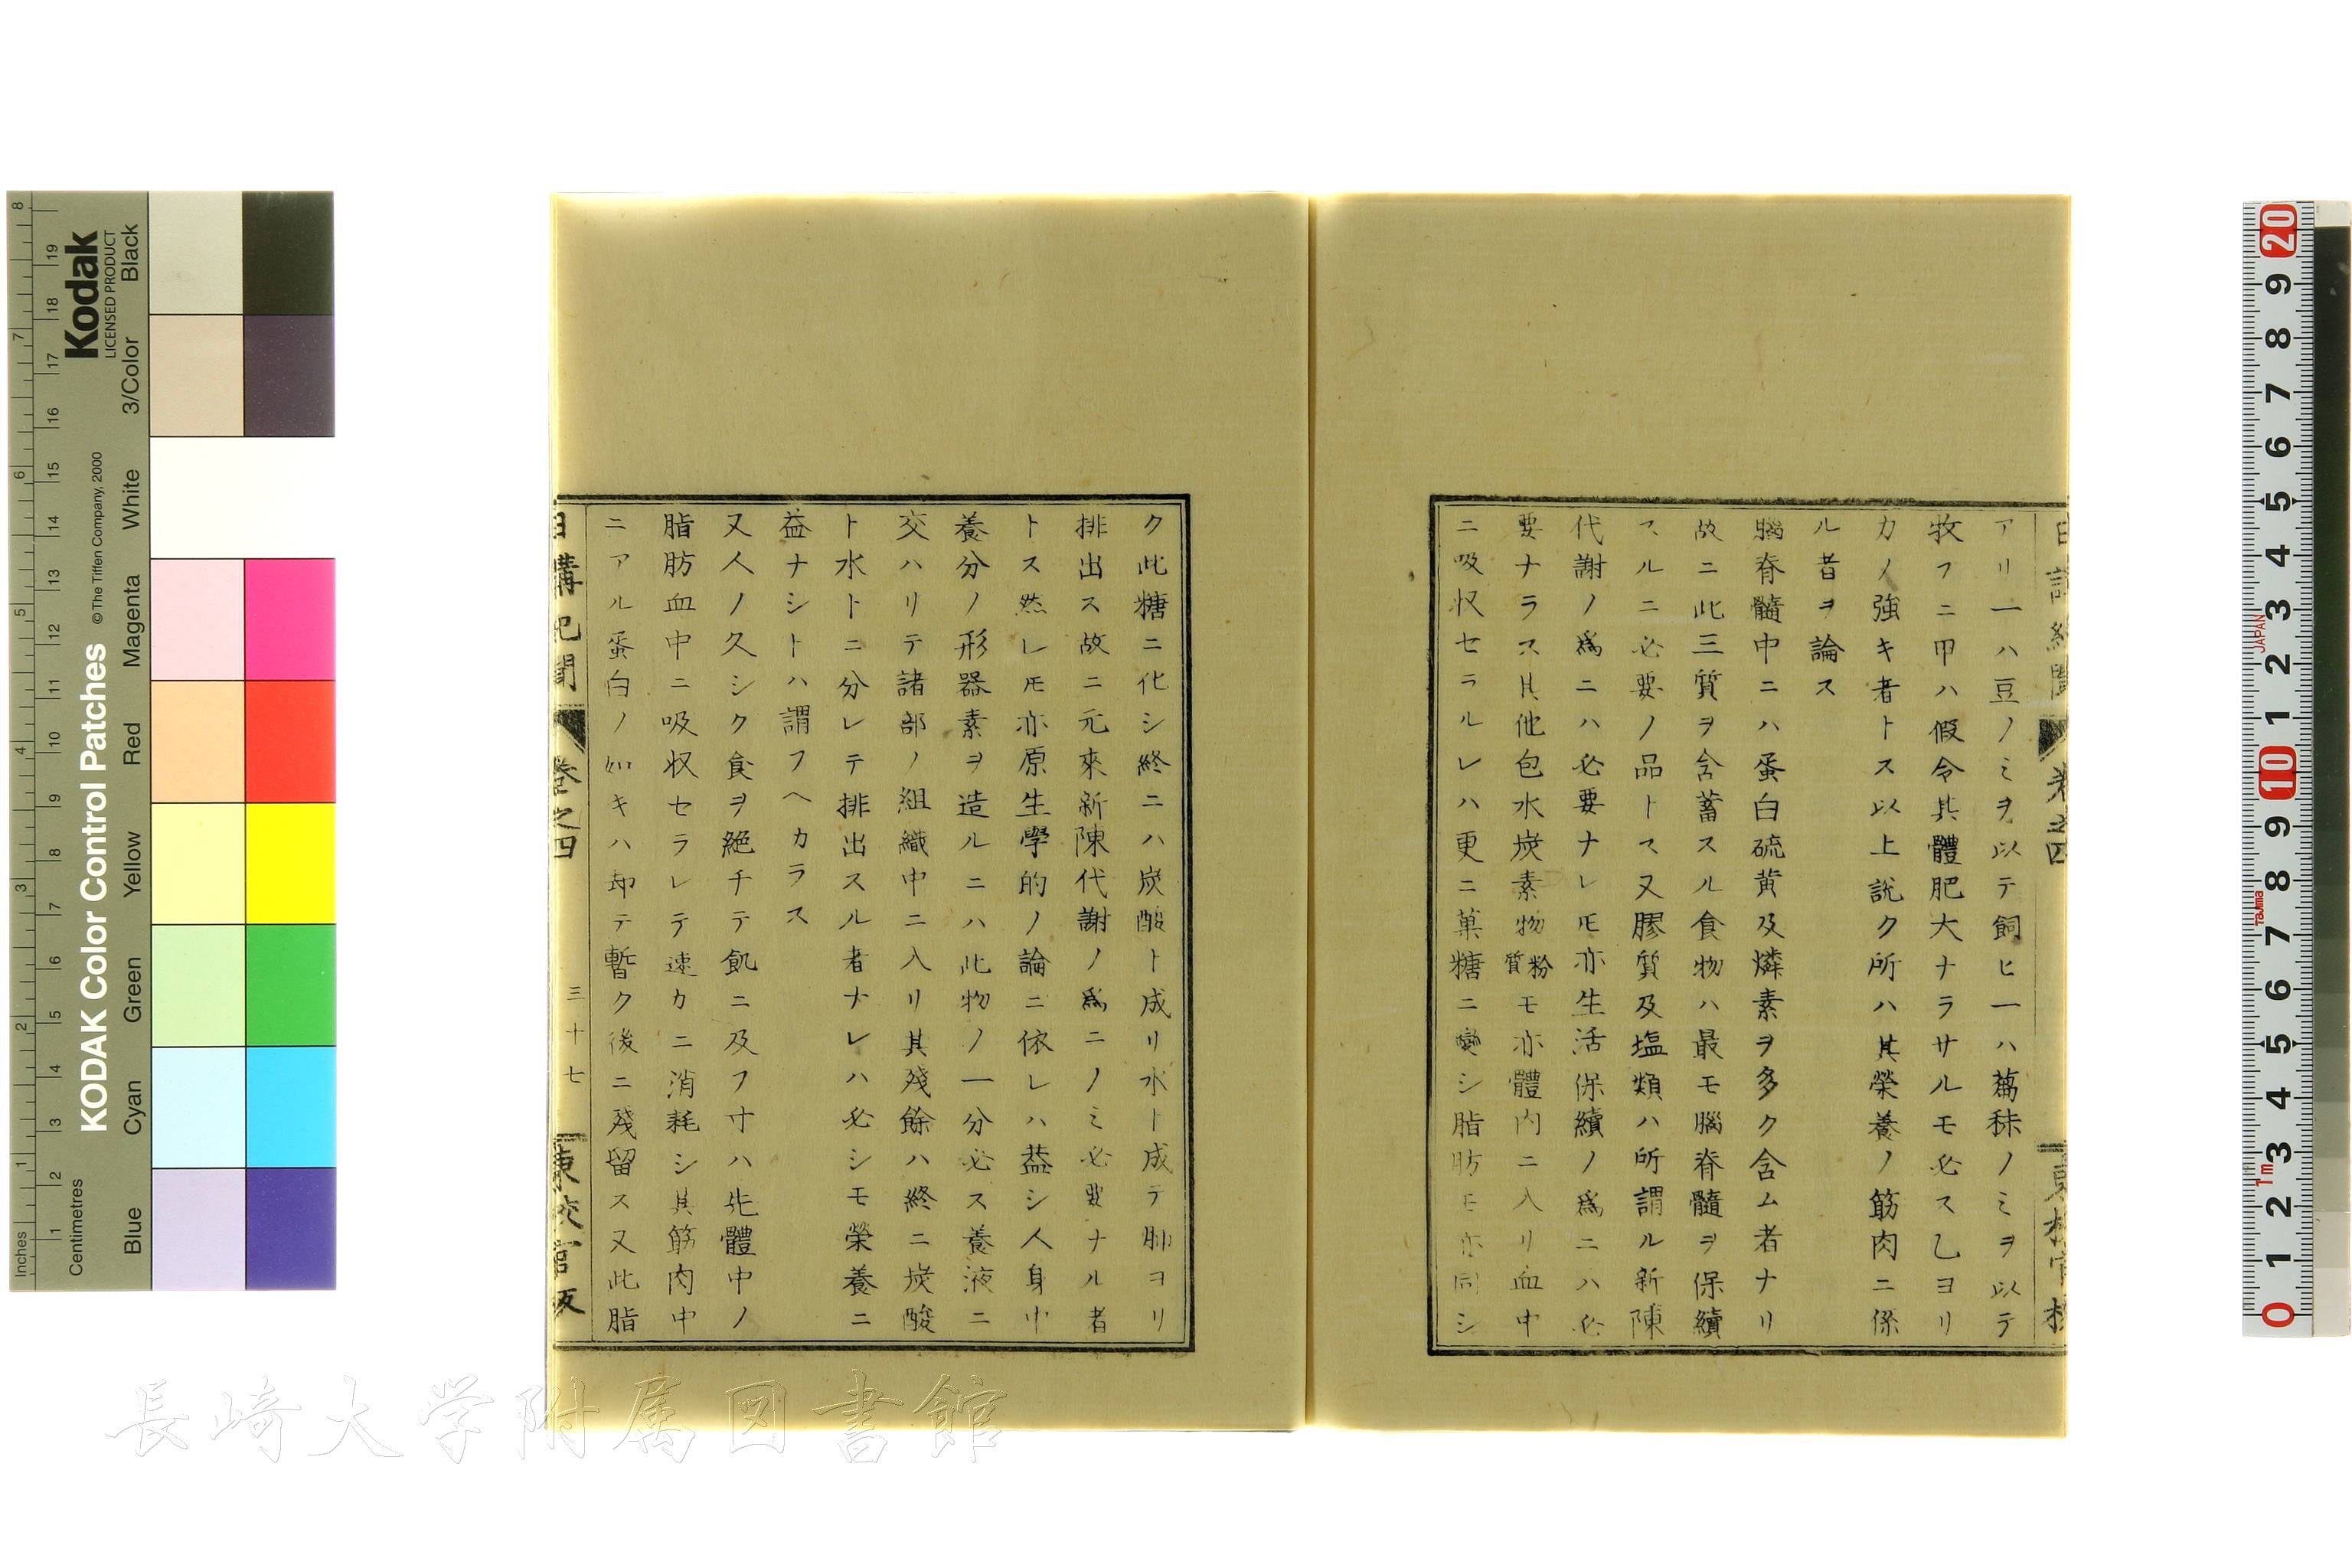 アリ一ハ豆ノミヲ以テ飼ヒ一ハ藁秣ノミヲ以テ
牧フニ甲ハ假令其體肥大ナラサルモ必ス乙ヨリ
カノ強キ者トス以上説ク所ハ其榮養ノ筋肉ニ係
ル者ヲ論ス
腦脊髓中ニハ蛋白硫黄及燐素ヲ多ク含ム者ナリ
故ニ此三質ヲ含蓄スル食物ハ最モ腦脊髓ヲ保續
スルニ必要ノ品トス又膠質及塩類ハ所謂ル新陳
代謝ノ爲ニハ必要ナレモ亦生活保續ノ爲ニハ必
要ナラス其他包水炭素物粉質モ亦體内ニ入リ血中
ニ吸収セラルレハ更ニ菓糖ニ變シ脂肪モ亦同シ
ク此糖ニ化シ終ニハ炭酸ト成リ水ト成テ肺ヨリ
排出ス故ニ元來新陳代謝ノ爲ニノミ必要ナル者
トス然レモ亦原生學的ノ論ニ依レハ蓋シ人身中
養分ノ形器素ヲ造ルニハ此物ノ一分必ス養液ニ
交ハリテ諸部ノ組織中ニ入リ其殘餘ハ終ニ炭酸
ト水トニ分レテ排出スル者ナレハ必シモ榮養ニ
益ナシトハ謂フヘカラス
又人ノ久シク食ヲ絶チテ飢ニ及フ寸ハ先體中ノ
脂肪血中ニ吸収セラレテ速カニ消耗シ其筋肉中
ニアル蛋白ノ如キハ却テ暫ク後ニ殘留ス又此脂
日講記聞 卷之四 三十七 東校官版
長崎大学附属図書館
Kodak
LICENSED PRODUCT
KODAK Color Control Patches
© The Tiffen Company, 2000
Inches 1 2 3 4 5 6 7 8
Centimetres 1 2 3 4 5 6 7 8 9 10 11 12 13 14 15 16 17 18 19
Blue Cyan Green Yellow Red Magenta White 3/Color Black
0 1 2 3 4 5 6 7 8 9 10 1 2 3 4 5 6 7 8 9 20
1m Tajima JAPAN